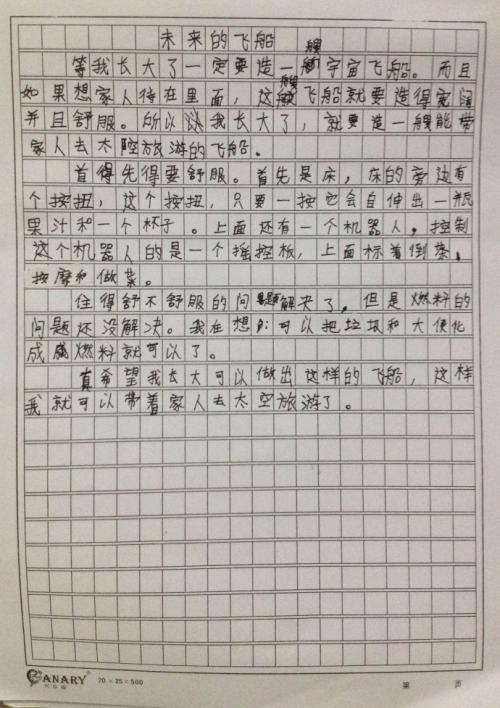 未来的飞船
等我长大了一定要造一艘宇宙飞船。而且
如果想家人待在里面，这艘飞船就要造得宽阔
并且舒服。所以我长大了，就要造一艘能带
家人去太腔旅游的飞船。
首得先得要舒服。首先是床，床的旁边有
个按扭，这个按扭，只要一按它会自伸出一瓶
果汁和一个杯子。上面还有一个机器人，控制
这个机器人的是一个摇控板，上面标着倒茶，
按摩和做菜。
住得舒不舒服的问题解决了，但是燃料的
问题还没解决。我在想可以把垃圾和大便化
成燃料就可以了。
真希望我长大可以做出这样的飞船，这样
我就可以带着家人去太空旅游了。
CANARY
20×25=500
第 页